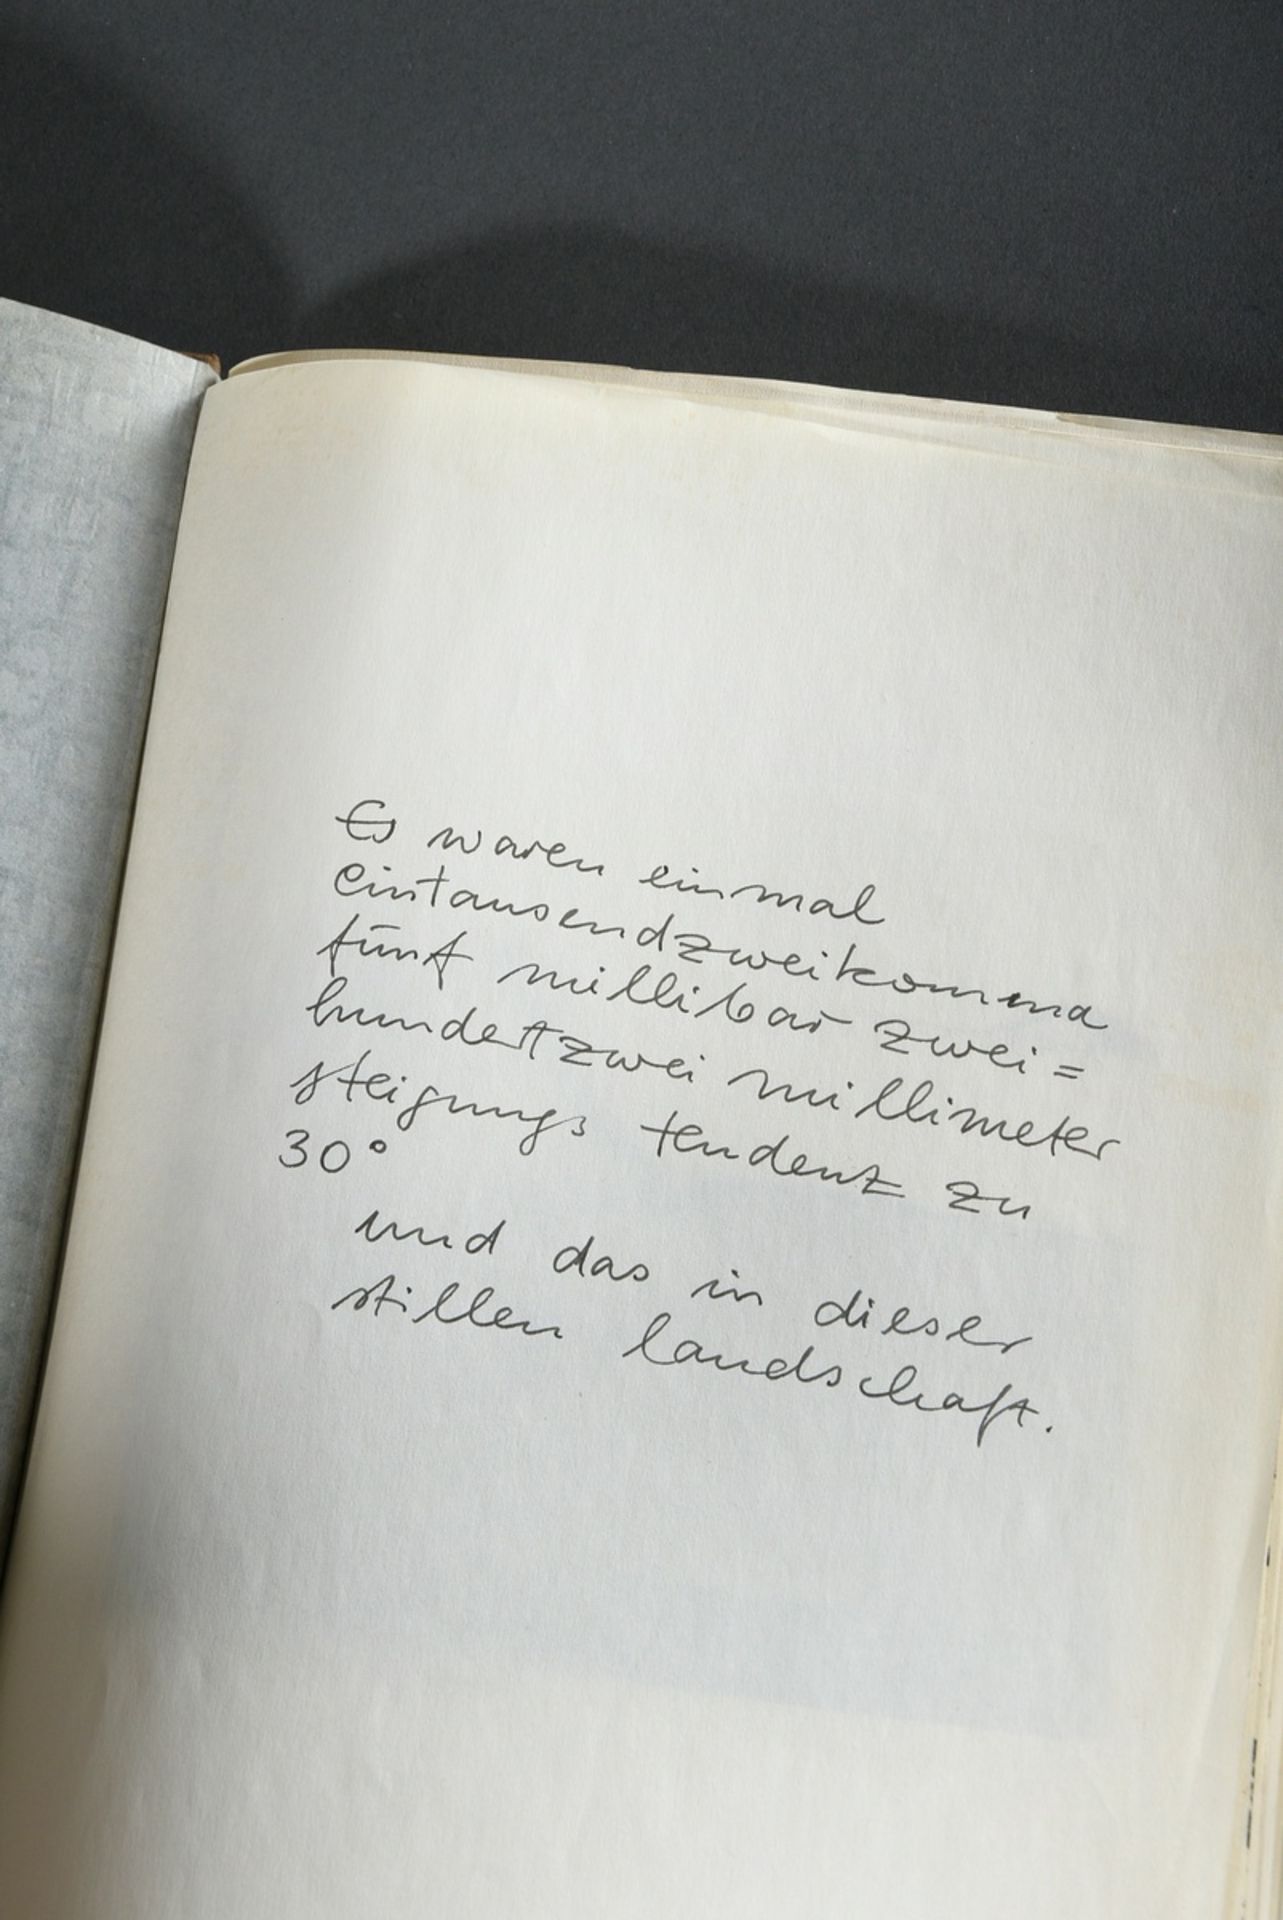 Es waren einmal
eintausendzweikomma
fünf millibar zwei=
hundertzwei millimeter
steigungs tendenz zu
30°
und das in dieser
stillen landschaft.